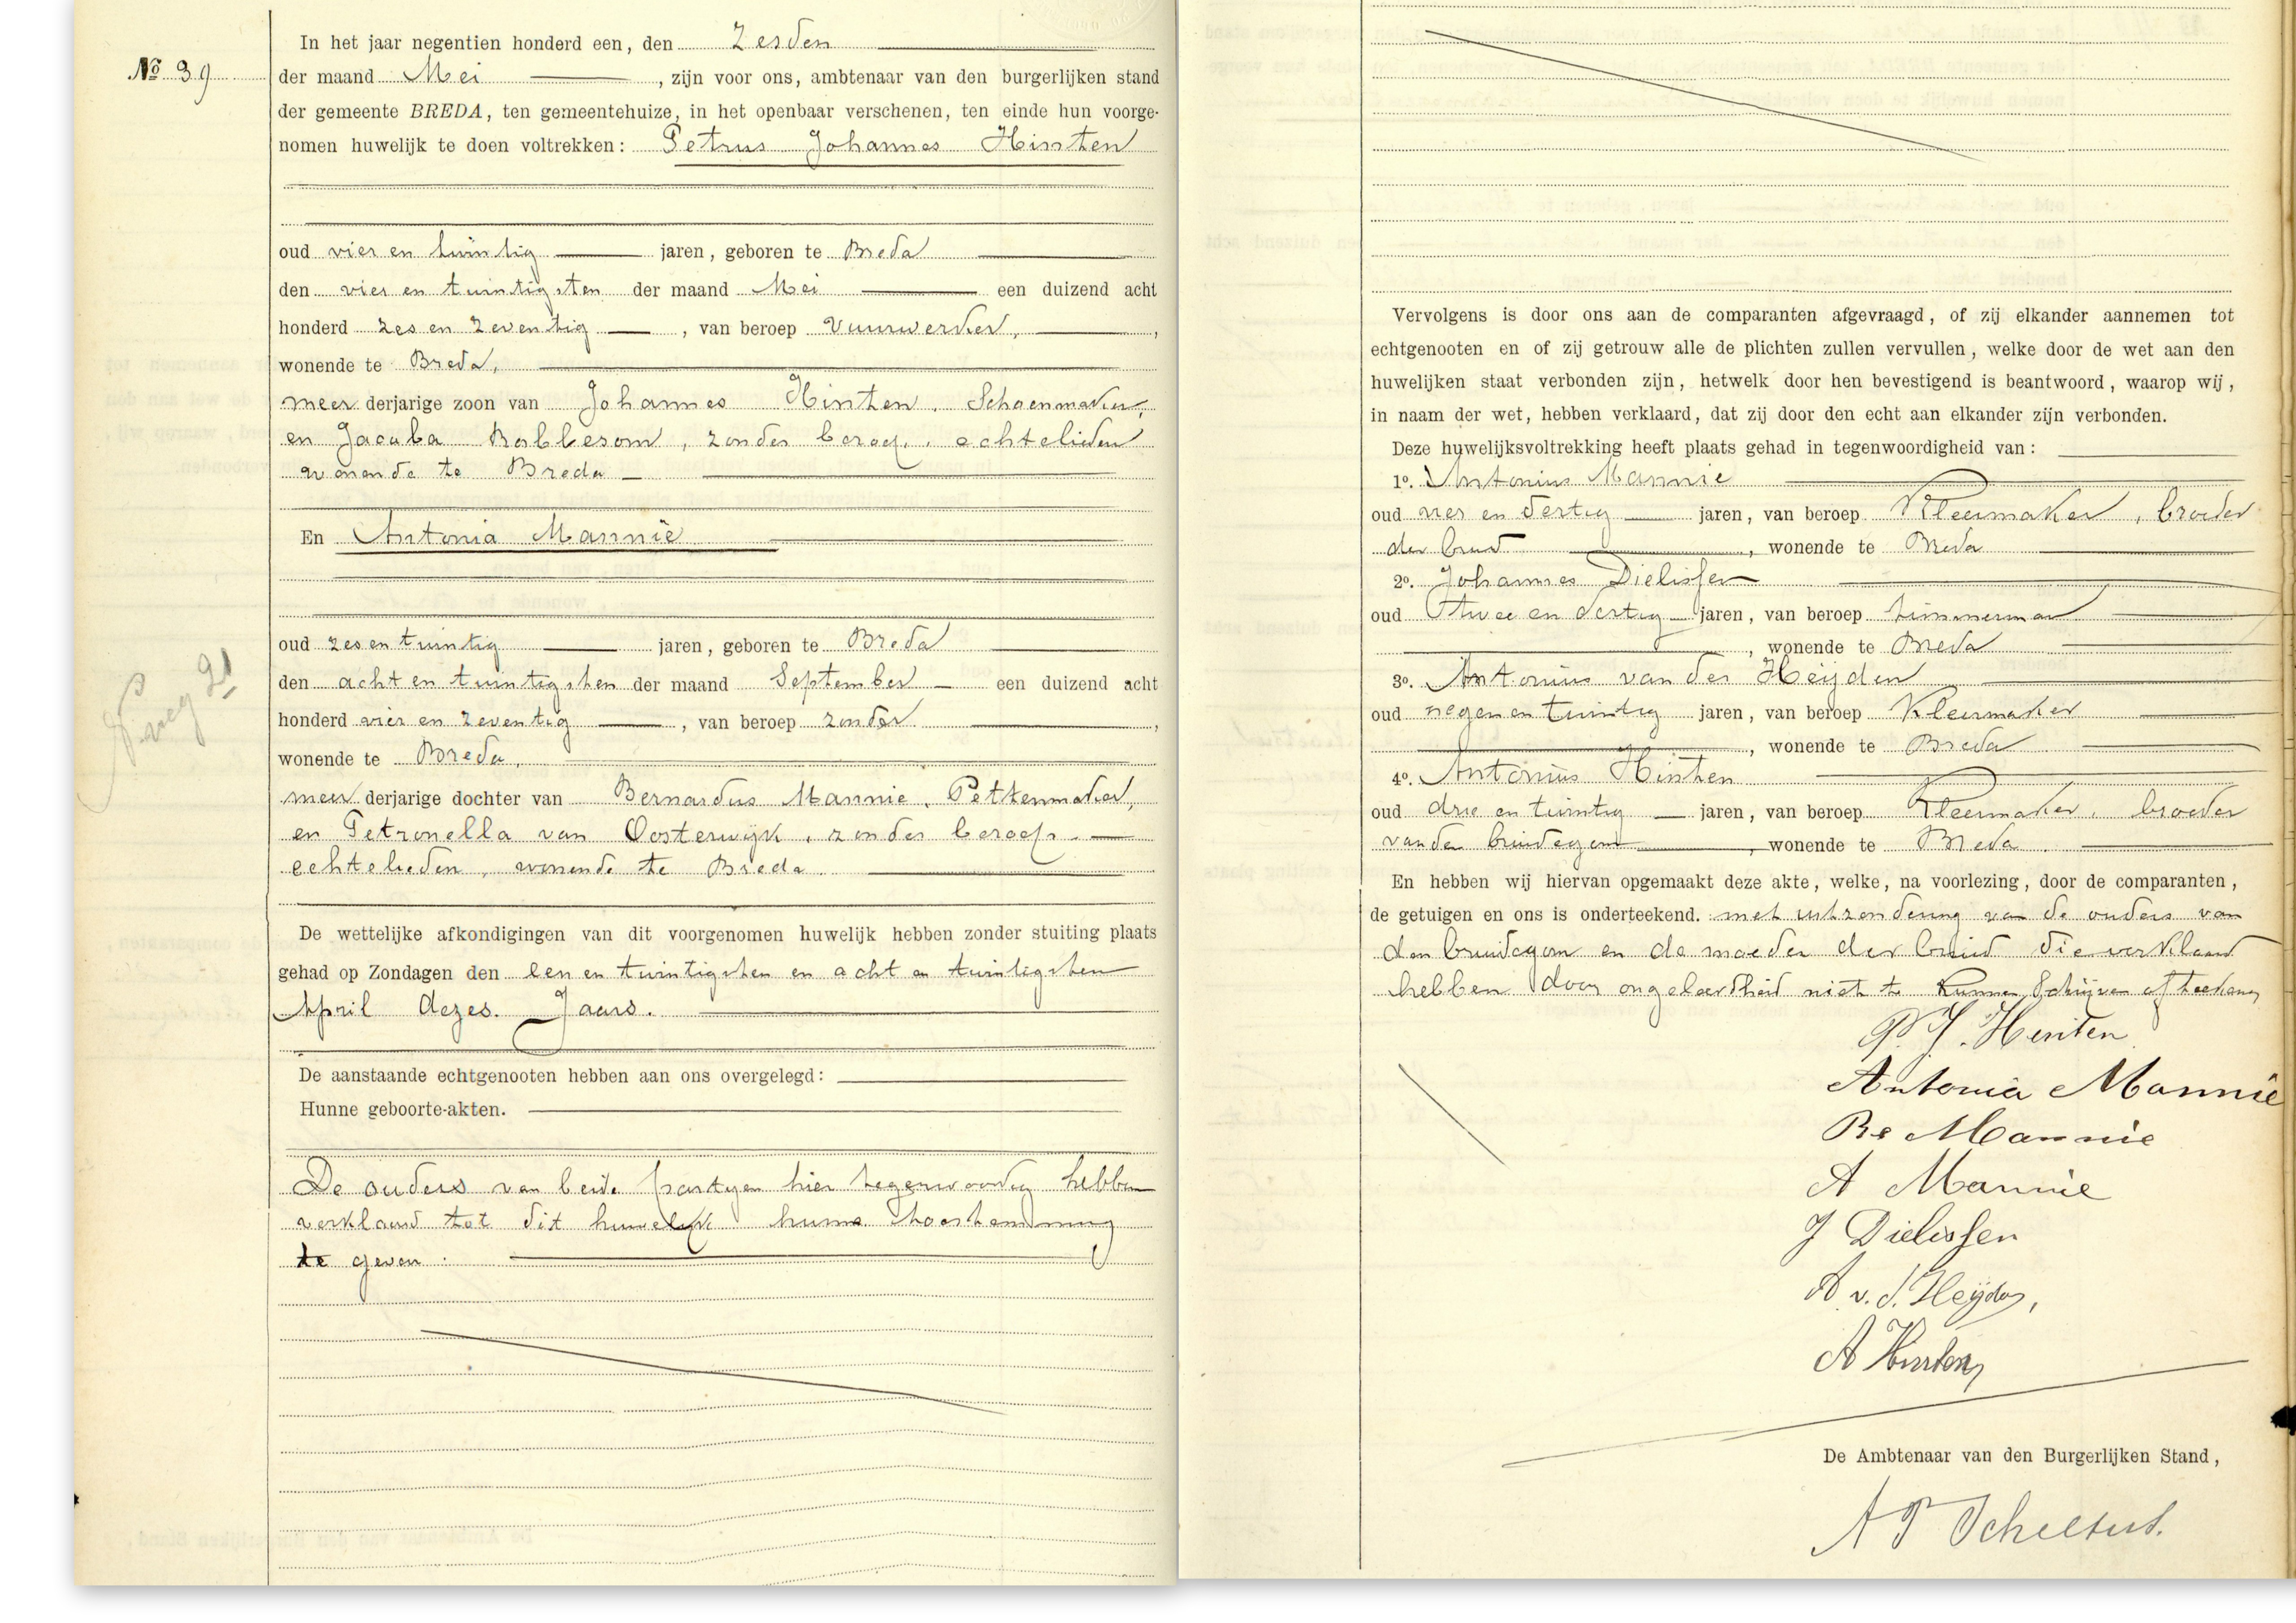 In het jaar negentien honderd een, den zesden
No 39
der maand Mei, zijn voor ons, ambtenaar van den burgerlijken stand
der gemeente BREDA, ten gemeentehuize, in het openbaar verschenen, ten einde hun voorge-
nomen huwelijk te doen voltrekken: Petrus Johannes Hinten
oud vier en twintig jaren, geboren te Breda
den vier en twintigsten der maand Mei een duizend acht
honderd zes en zeventig, van beroep vuurwerker,
wonende te Breda,
meer derjarige zoon van Johannes Hinten, Schoenmaker,
en Jacoba Robbesom, zonder beroep, echtelieden
wonende te Breda
En Antonia Mannie
oud zes en twintig jaren, geboren te Breda
den acht en twintigsten der maand September een duizend acht
honderd vier en zeventig, van beroep zonder,
wonende te Breda,
meer derjarige dochter van Bernardus Mannie, Pettenmaker,
en Petronella van Oosterwijk, zonder beroep,
echtelieden, wonende te Breda.
De wettelijke afkondigingen van dit voorgenomen huwelijk hebben zonder stuiting plaats
gehad op Zondagen den een en twintigsten en acht en twintigsten
April dezes Jaars.
De aanstaande echtgenooten hebben aan ons overgelegd:
Hunne geboorte-akten.
De ouders van beide partyen hier tegenwoordig hebben
verklaard tot dit huwelijk hunne toestemming
te geven.
Vervolgens is door ons aan de comparanten afgevraagd, of zij elkander aannemen tot
echtgenooten en of zij getrouw alle de plichten zullen vervullen, welke door de wet aan den
huwelijken staat verbonden zijn, hetwelk door hen bevestigend is beantwoord, waarop wij,
in naam der wet, hebben verklaard, dat zij door den echt aan elkander zijn verbonden.
Deze huwelijksvoltrekking heeft plaats gehad in tegenwoordigheid van:
1o. Antonius Mannie
oud vier en dertig jaren, van beroep Kleermaker, broeder
der bruid, wonende te Breda
2o. Johannes Dielissen
oud twee en dertig jaren, van beroep timmerman
, wonende te Breda
3o. Antonius van der Heijden
oud negen en twintig jaren, van beroep Kleermaker
, wonende te Breda
4o. Antonius Hinten
oud drie en twintig jaren, van beroep Kleermaker, broeder
van den bruidegom, wonende te Breda.
En hebben wij hiervan opgemaakt deze akte, welke, na voorlezing, door de comparanten,
de getuigen en ons is onderteekend. met uitzondering van de ouders van
den bruidegom en de moeder der bruid die verklaard
hebben door ongeleerdheid niet te kunnen schrijven of teekenen
P. J. Hinten
Antonia Mannie
Be Mannie
A Mannie
J Dielissen
A v. d. Heijden,
A Hinten
De Ambtenaar van den Burgerlijken Stand,